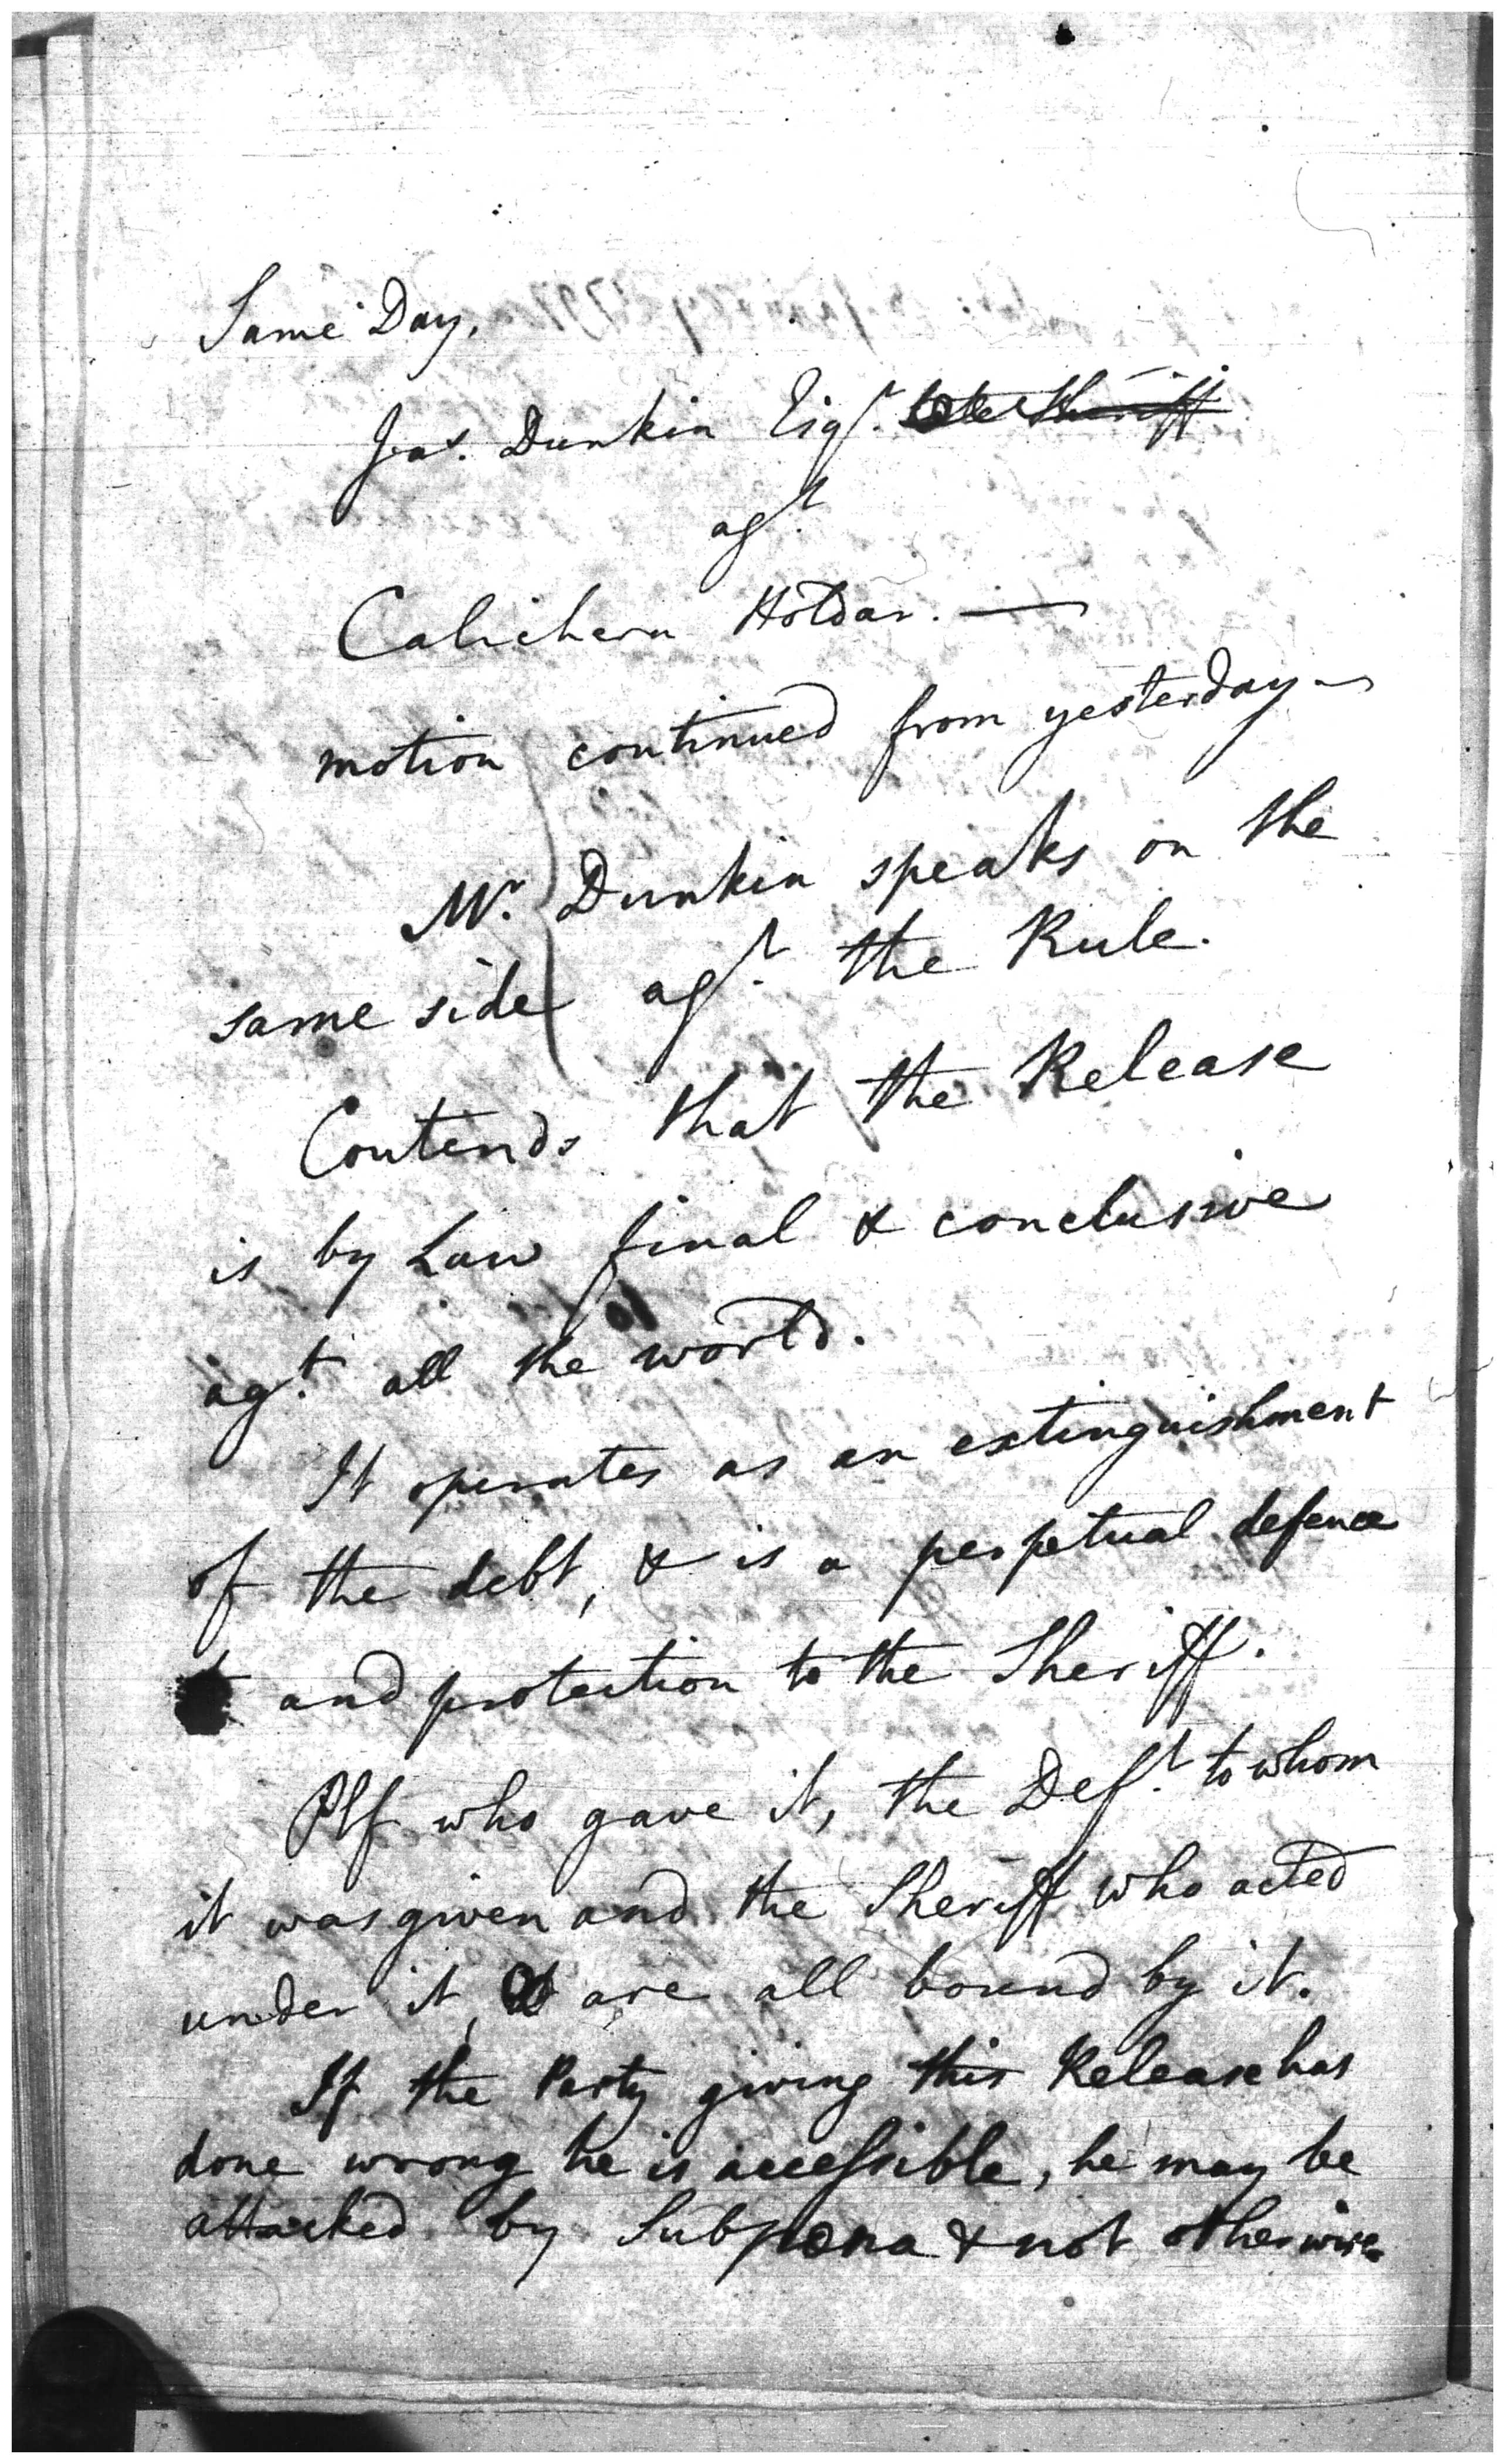 Same Day,
Jas. Dunkin Esqr. late Sheriff
agt.
Calichern Holdar. —
motion continued from yesterday —
Mr. Dunkin speaks on the
same side agt. the Rule.
Contends that the Release
is by Law final & conclusive
agt. all the world.
It operates as an extinguishment
of the debt, & is a perpetual defence
and protection to the Sheriff.
Plf who gave it, the Deft. to whom
it was given and the Sheriff who acted
under it, are all bound by it.
If the Party giving this Release has
done wrong he is accessible, he may be
attacked by Subpona & not otherwise